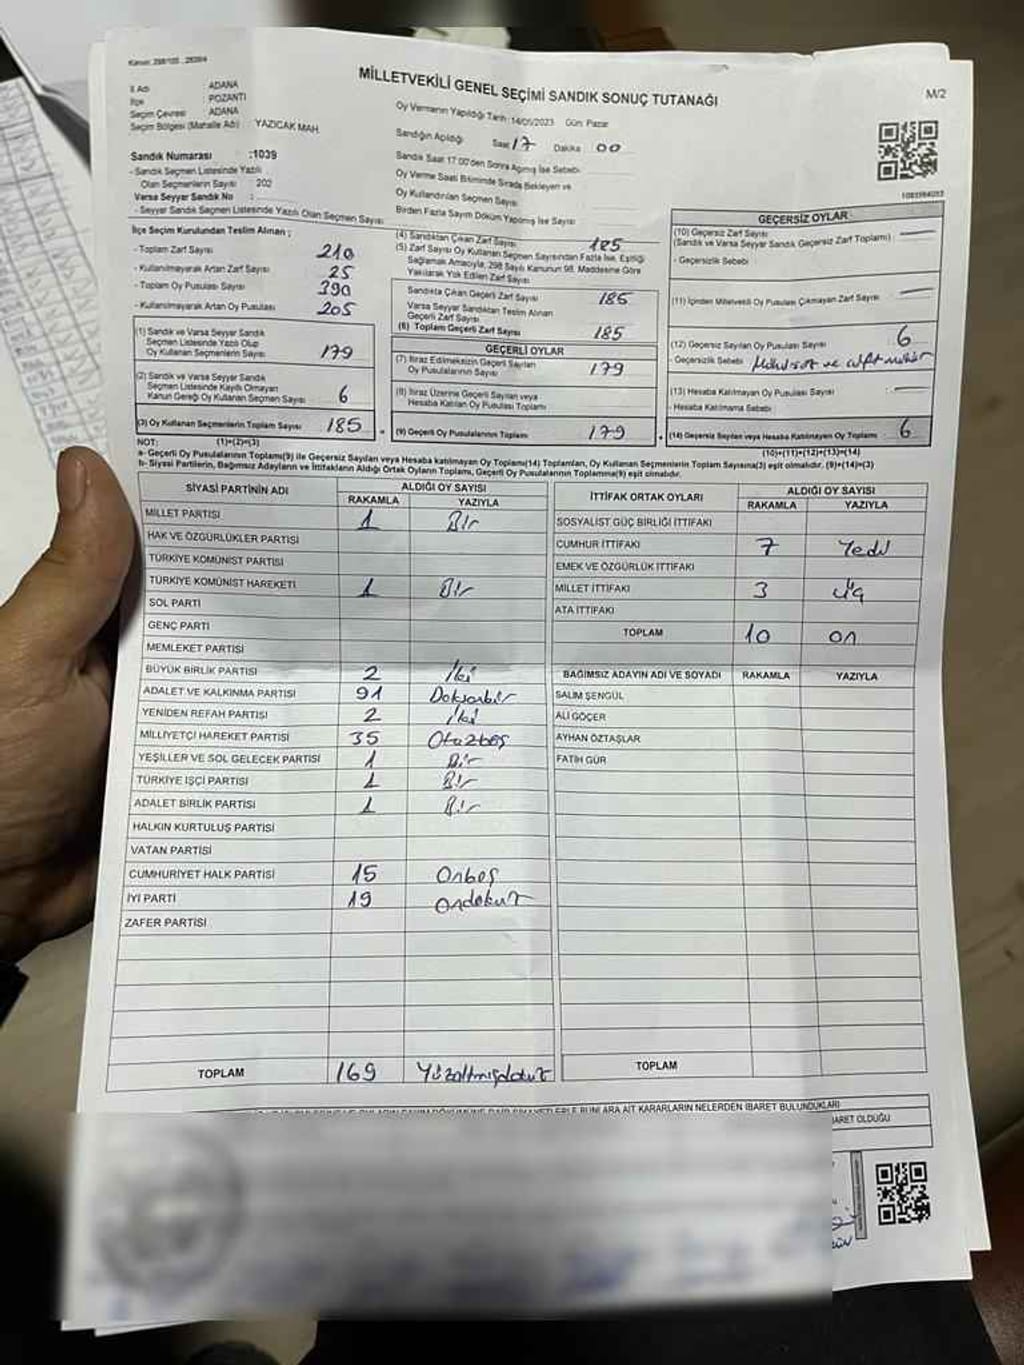 Kanun: 298/105 , 2839/4
MİLLETVEKİLİ GENEL SEÇİMİ SANDIK SONUÇ TUTANAĞI
M/2
İl Adı : ADANA
İlçe : POZANTI
Seçim Çevresi : ADANA
Seçim Bölgesi (Mahalle Adı) : YAZICAK MAH.
Oy Vermenin Yapıldığı Tarih : 14/05/2023 Gün: Pazar
Sandığın Açıldığı Saat 17 Dakika 00
Sandık Saat 17:00'den Sonra Açılmış İse Sebebi
Oy Verme Saati Bitiminde Sırada Bekleyen ve
Oy Kullandırılan Seçmen Sayısı
Birden Fazla Sayım Döküm Yapılmış İse Sayısı
Sandık Numarası :1039
- Sandık Seçmen Listesinde Yazılı
Olan Seçmenlerin Sayısı : 202
Varsa Seyyar Sandık No :
- Seyyar Sandık Seçmen Listesinde Yazılı Olan Seçmen Sayısı
İlçe Seçim Kurulundan Teslim Alınan ;
- Toplam Zarf Sayısı 210
- Kullanılmayarak Artan Zarf Sayısı 25
- Toplam Oy Pusulası Sayısı 390
- Kullanılmayarak Artan Oy Pusulası 205
(1) Sandık ve Varsa Seyyar Sandık
Seçmen Listesinde Yazılı Olup
Oy Kullanan Seçmenlerin Sayısı 179
(2) Sandık ve Varsa Seyyar Sandık
Seçmen Listesinde Kaydı Olmayan
Kanun Gereği Oy Kullanan Seçmen Sayısı 6
(3) Oy Kullanan Seçmenlerin Toplam Sayısı 185
(4) Sandıktan Çıkan Zarf Sayısı 185
(5) Zarf Sayısı Oy Kullanan Seçmen Sayısından Fazla İse, Eşitliği
Sağlamak Amacıyla, 298 Sayılı Kanunun 98. Maddesine Göre
Yakılarak Yok Edilen Zarf Sayısı
Sandıkta Çıkan Geçerli Zarf Sayısı 185
Varsa Seyyar Sandıktan Teslim Alınan
Geçerli Zarf Sayısı
(6) Toplam Geçerli Zarf Sayısı 185
GEÇERLİ OYLAR
(7) İtiraz Edilmeksizin Geçerli Sayılan
Oy Pusulalarının Sayısı 179
(8) İtiraz Üzerine Geçerli Sayılan veya
Hesaba Katılan Oy Pusulası Toplamı
(9) Geçerli Oy Pusulalarının Toplamı 179
GEÇERSİZ OYLAR
(10) Geçersiz Zarf Sayısı
(Sandık ve Varsa Seyyar Sandık Geçersiz Zarf Toplamı) —
- Geçersizlik Sebebi :
(11) İçinden Milletvekili Oy Pusulası Çıkmayan Zarf Sayısı —
(12) Geçersiz Sayılan Oy Pusulası Sayısı 6
- Geçersizlik Sebebi
(13) Hesaba Katılmayan Oy Pusulası Sayısı : —
- Hesaba Katılmama Sebebi :
(14) Geçersiz Sayılan veya Hesaba Katılmayan Oy Toplamı 6
NOT: (1)+(2)=(3) (10)+(11)+(12)+(13)=(14)
a- Geçerli Oy Pusulalarının Toplamı(9) ile Geçersiz Sayılan veya Hesaba katılmayan Oy Toplamı(14) Toplamları, Oy Kullanan Seçmenlerin Toplam Sayısına(3) eşit olmalıdır. (9)+(14)=(3)
b- Siyasi Partilerin, Bağımsız Adayların ve İttifakların Aldığı Ortak Oyların Toplamı, Geçerli Oy Pusulalarının Toplamına(9) eşit olmalıdır.
SİYASİ PARTİNİN ADI ALDIĞI OY SAYISI
RAKAMLA YAZIYLA
MİLLET PARTİSİ 1 Bir
HAK VE ÖZGÜRLÜKLER PARTİSİ
TÜRKİYE KOMÜNİST PARTİSİ
TÜRKİYE KOMÜNİST HAREKETİ 1 Bir
SOL PARTİ
GENÇ PARTİ
MEMLEKET PARTİSİ
BÜYÜK BİRLİK PARTİSİ 2 İki
ADALET VE KALKINMA PARTİSİ 91 Doksanbir
YENİDEN REFAH PARTİSİ 2 İki
MİLLİYETÇİ HAREKET PARTİSİ 35 Otuzbeş
YEŞİLLER VE SOL GELECEK PARTİSİ 1 Bir
TÜRKİYE İŞÇİ PARTİSİ 1 Bir
ADALET BİRLİK PARTİSİ 1 Bir
HALKIN KURTULUŞ PARTİSİ
VATAN PARTİSİ
CUMHURİYET HALK PARTİSİ 15 Onbeş
İYİ PARTİ 19 Ondokuz
ZAFER PARTİSİ
TOPLAM 169 Yüzaltmışdokuz
İTTİFAK ORTAK OYLARI ALDIĞI OY SAYISI
RAKAMLA YAZIYLA
SOSYALİST GÜÇ BİRLİĞİ İTTİFAKI
CUMHUR İTTİFAKI 7 Yedi
EMEK VE ÖZGÜRLÜK İTTİFAKI
MİLLET İTTİFAKI 3 Üç
ATA İTTİFAKI
TOPLAM 10 on
BAĞIMSIZ ADAYIN ADI VE SOYADI RAKAMLA YAZIYLA
SALİM ŞENGÜL
ALİ GÖÇER
AYHAN ÖZTAŞLAR
FATİH GÜR
TOPLAM
KARARLARIN NELERDEN İBARET BULUNDUKLARI
İBARET OLDUĞU